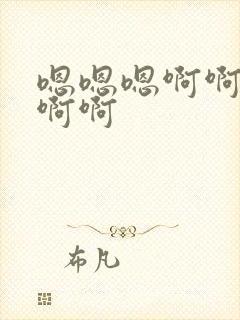 嗯嗯嗯啊啊
啊啊
布凡